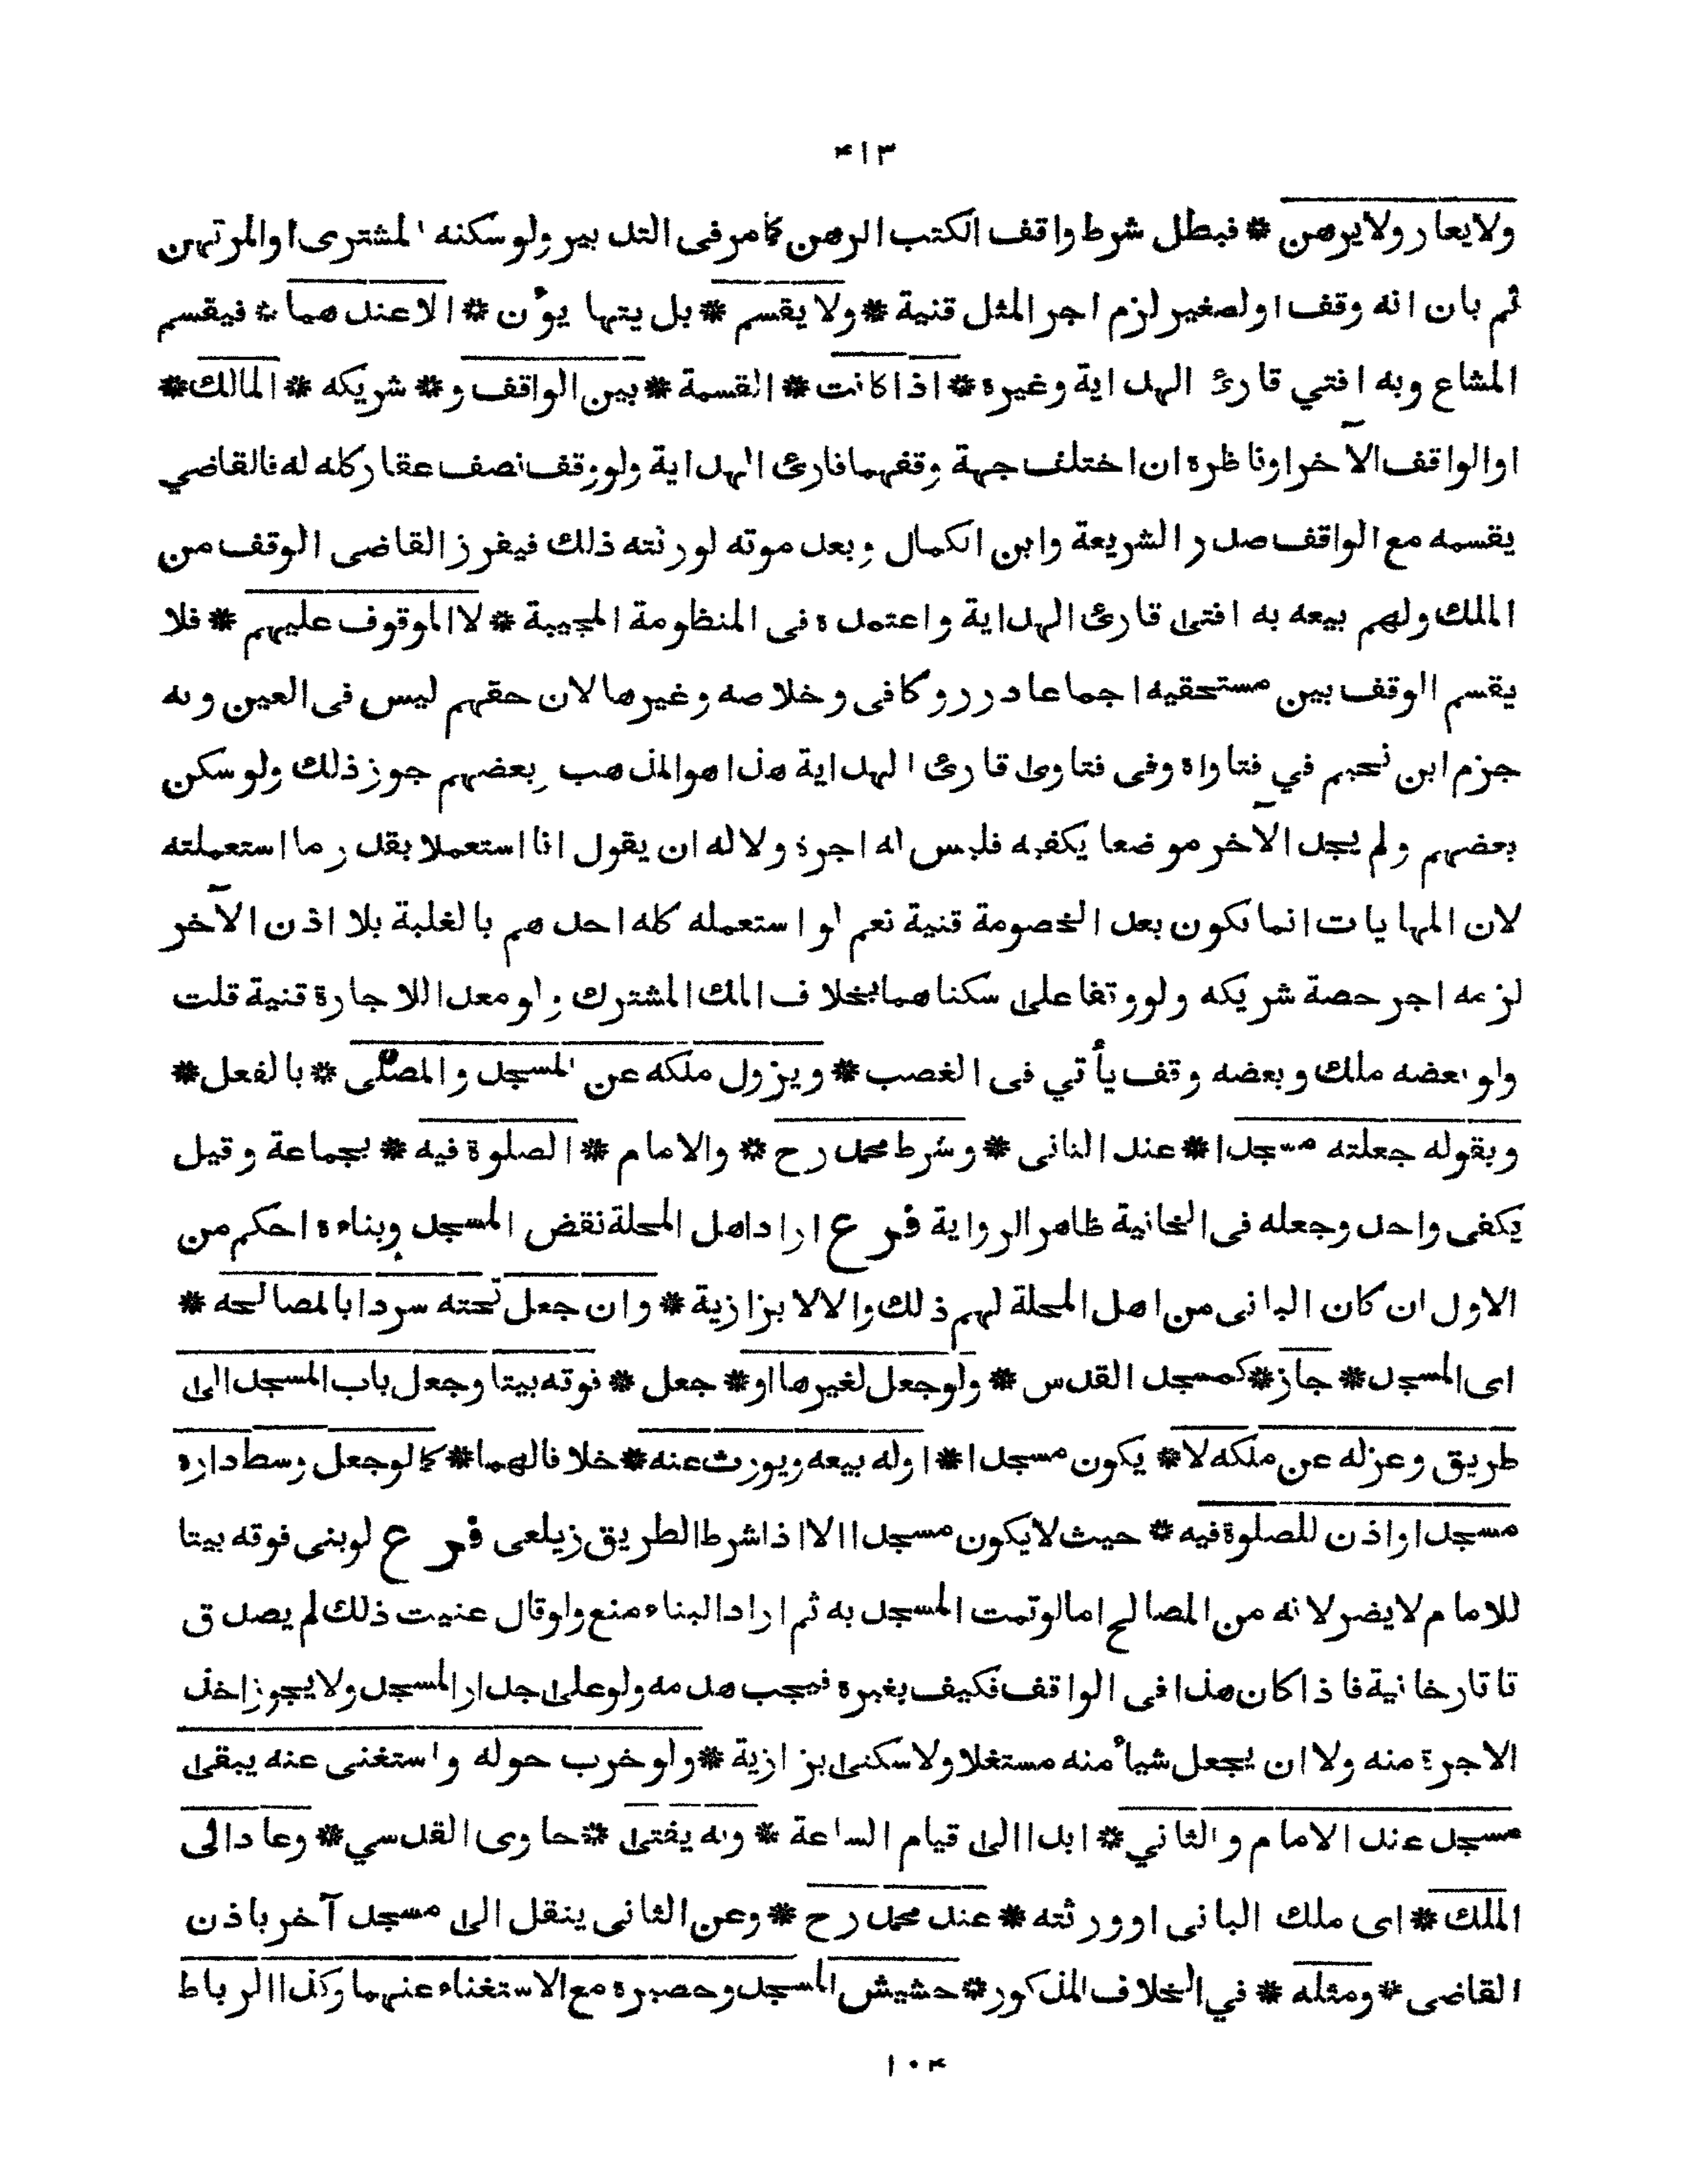 ۴۱۳
ولايعار ولايرهن * فبطل شرط واقف الكتب الرهن كما مر فى التدبير ولو سكنه المشترى او المرتهن
ثم بان انه وقف او لصغير لزم اجر المثل قنية * ولا يقسم * بل يتهايؤن * الا عندهما * فيقسم
المشاع وبه افتي قارئ الهداية وغيره * اذا كانت * القسمة * بين الواقف و * شريكه * المالك *
او الواقف الآخر او ناظره ان اختلف جهة وقفهما قارئ الهداية ولو وقف نصف عقار كله له فالقاضي
يقسمه مع الواقف صدر الشريعة وابن الكمال وبعد موته لورثته ذلك فيفرز القاضى الوقف من
الملك ولهم بيعه به افتى قارئ الهداية واعتمده فى المنظومة المحبية * لا الموقوف عليهم * فلا
يقسم الوقف بين مستحقيه اجماعا درر وكافى وخلاصه وغيرها لان حقهم ليس فى العين وبه
جزم ابن نجيم في فتاواه وفى فتاوى قارئ الهداية هذا هو المذهب وبعضهم جوز ذلك ولو سكن
بعضهم ولم يجد الآخر موضعا يكفيه فليس له اجرة ولا له ان يقول انا استعملا بقدر ما استعملته
لان المهايات انما تكون بعد الخصومة قنية نعم لو استعمله كله احدهم بالغلبة بلا اذن الآخر
لزمه اجر حصة شريكه ولو وتفا على سكناهما بخلاف الملك المشترك ولو معدا للاجارة قنية قلت
ولو بعضه ملك وبعضه وقف يأتي فى الغصب * ويزول ملكه عن المسجد والمصلّى * بالفعل *
وبقوله جعلته مسجدا * عند الثانى * وشرط محمد رح * والامام * الصلوة فيه * بجماعة وقيل
يكفى واحد وجعله فى الخانية ظاهر الرواية فرع اراد اهل المحلة نقض المسجد وبناءه احكم من
الاول ان كان البانى من اهل المحلة لهم ذلك والا لا بزازية * وان جعل تحته سردابا لمصالحه *
اى المسجد * جاز * كمسجد القدس * ولو جعل لغيرها او * جعل * فوته بيتا وجعل باب المسجد الى
طريق وعزله عن ملكه لا * يكون مسجدا * اوله بيعه ويورث عنه * خلافا لهما * كما لو جعل وسط داره
مسجدا واذن للصلوة فيه * حيث لا يكون مسجدا الا اذا شرط الطريق زيلعى فرع لو بنى فوقه بيتا
للامام لا يضر لانه من المصالح اما لو تمت المسجد به ثم اراد البناء منع ولو قال عنيت ذلك لم يصدق
تاتارخانية فاذا كان هذا فى الواقف فكيف بغيره فيجب هدمه ولو على جدار المسجد ولا يجوز اخذ
الاجرة منه ولا ان يجعل شيأ منه مستغلا ولا سكنى بزازية * ولو خرب حوله واستغنى عنه يبقى
مسجد عند الامام والثاني * ابدا الى قيام الساعة * وبه يفتى * حاوى القدسي * وعاد الى
الملك * اى ملك البانى او ورثته * عند محمد رح * وعن الثانى ينقل الى مسجد آخر باذن
القاضى * ومثله * في الخلاف المذكور * حشيش المسجد وحصيره مع الاستغناء عنهما وكذا الرباط
۱۰۴